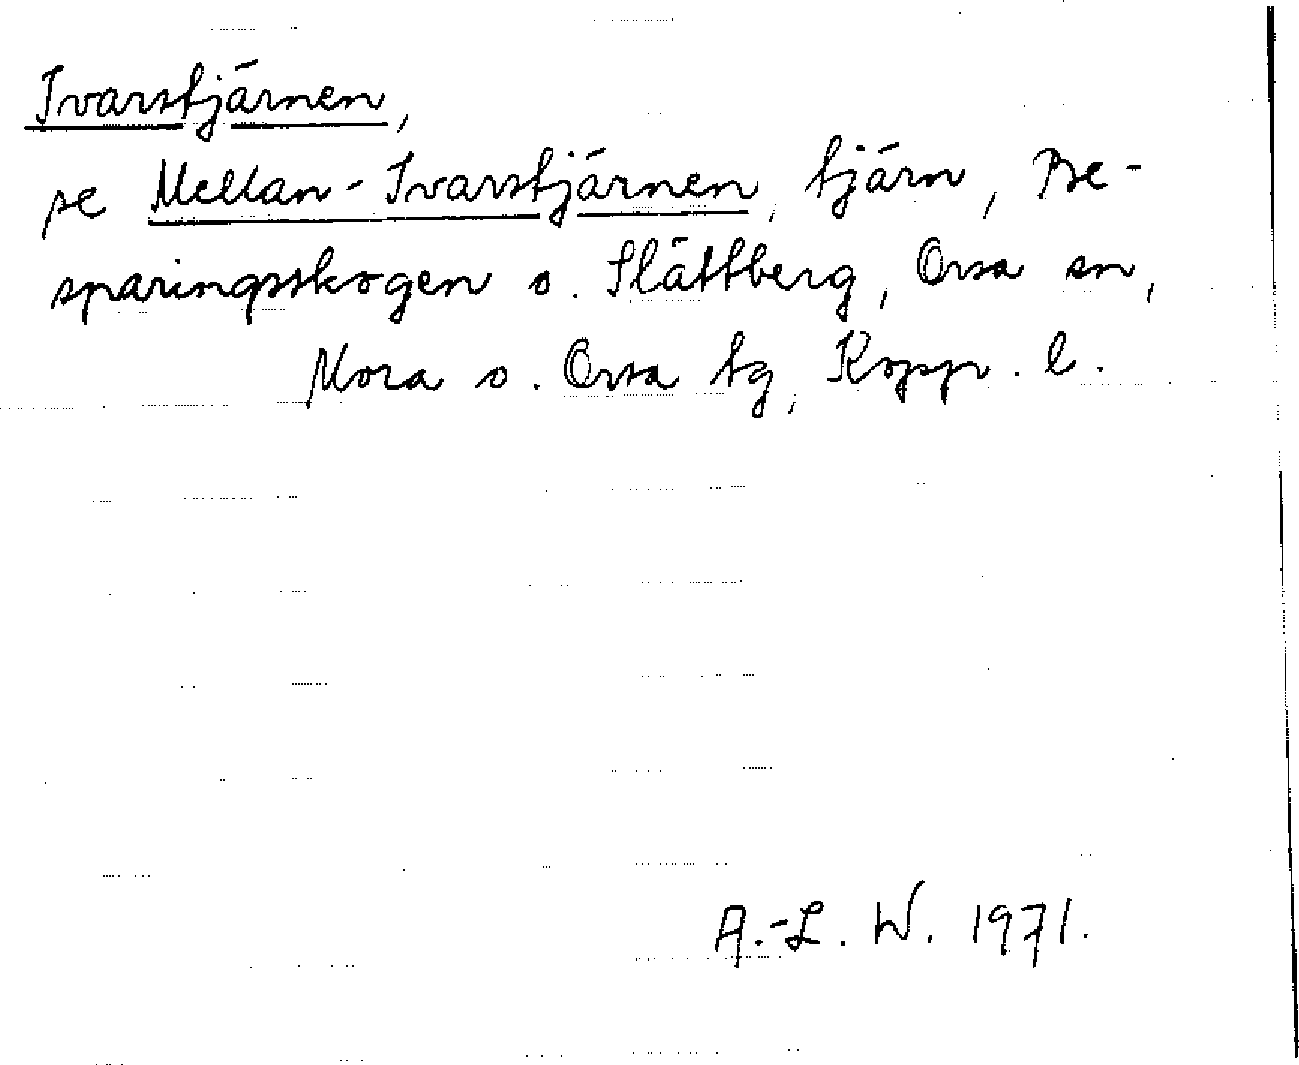 Ivarstjärnen,
se Mellan-Ivarstjärnen, tjärn, Be-
sparingsskogen o. Slättberg, Orsa sn,
Mora o. Orsa tg, Kopp. l.
A.-L. W. 1971.